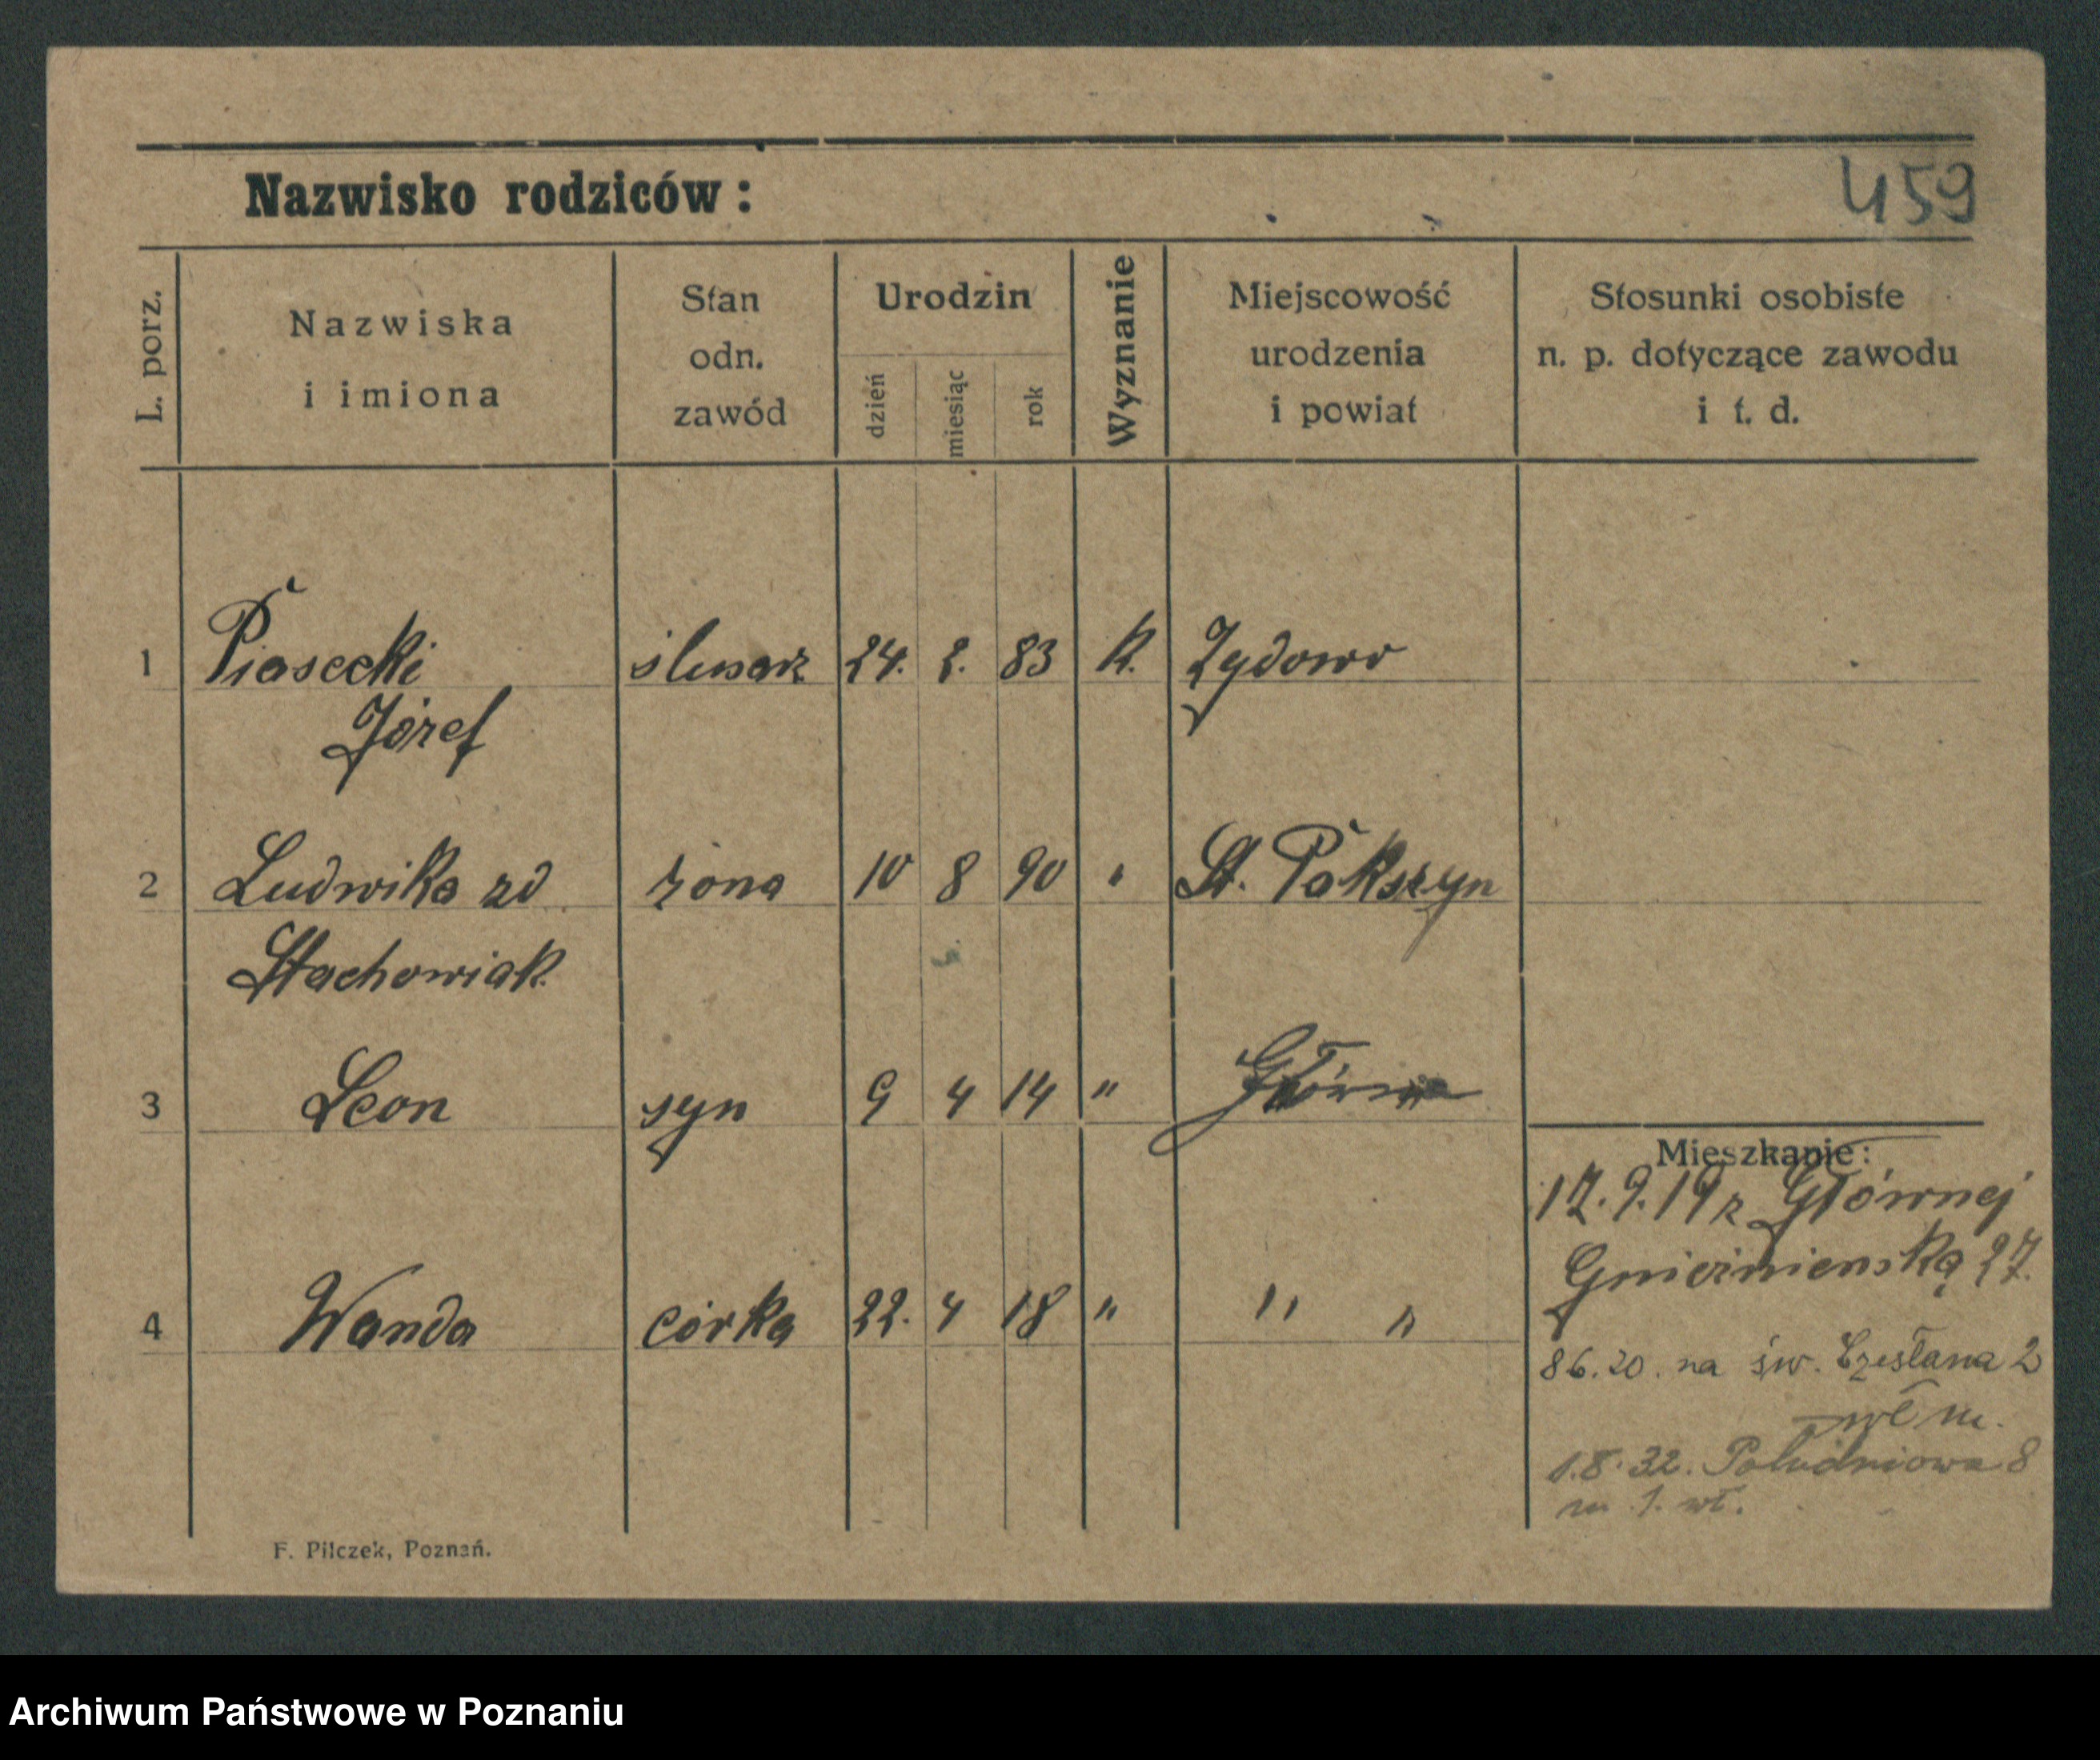 459
Nazwisko rodziców:
L. porz. Nazwiska i imiona Stan odn. zawód Urodzin dzień miesiąc rok Wyznanie Miejscowość urodzenia i powiat Stosunki osobiste n. p. dotyczące zawodu i t. d.
1 Piasecki ślusarz 24. 2. 83 K. Żydowo
Józef
2 Ludwika zd żona 10 8 90 " St. Pokszyn
Stachowiak
3 Leon syn 9 4 14 " Główna
4 Wanda córka 22. 4 18 " " "
Mieszkanie:
17.9.19 z Głównej
Gnieźnieńską 27.
8 6. 20. na św. Czesława 2
wł m.
1.8.32. Południowa 8
m. 1. wł.
F. Pilczek, Poznań.
Archiwum Państwowe w Poznaniu